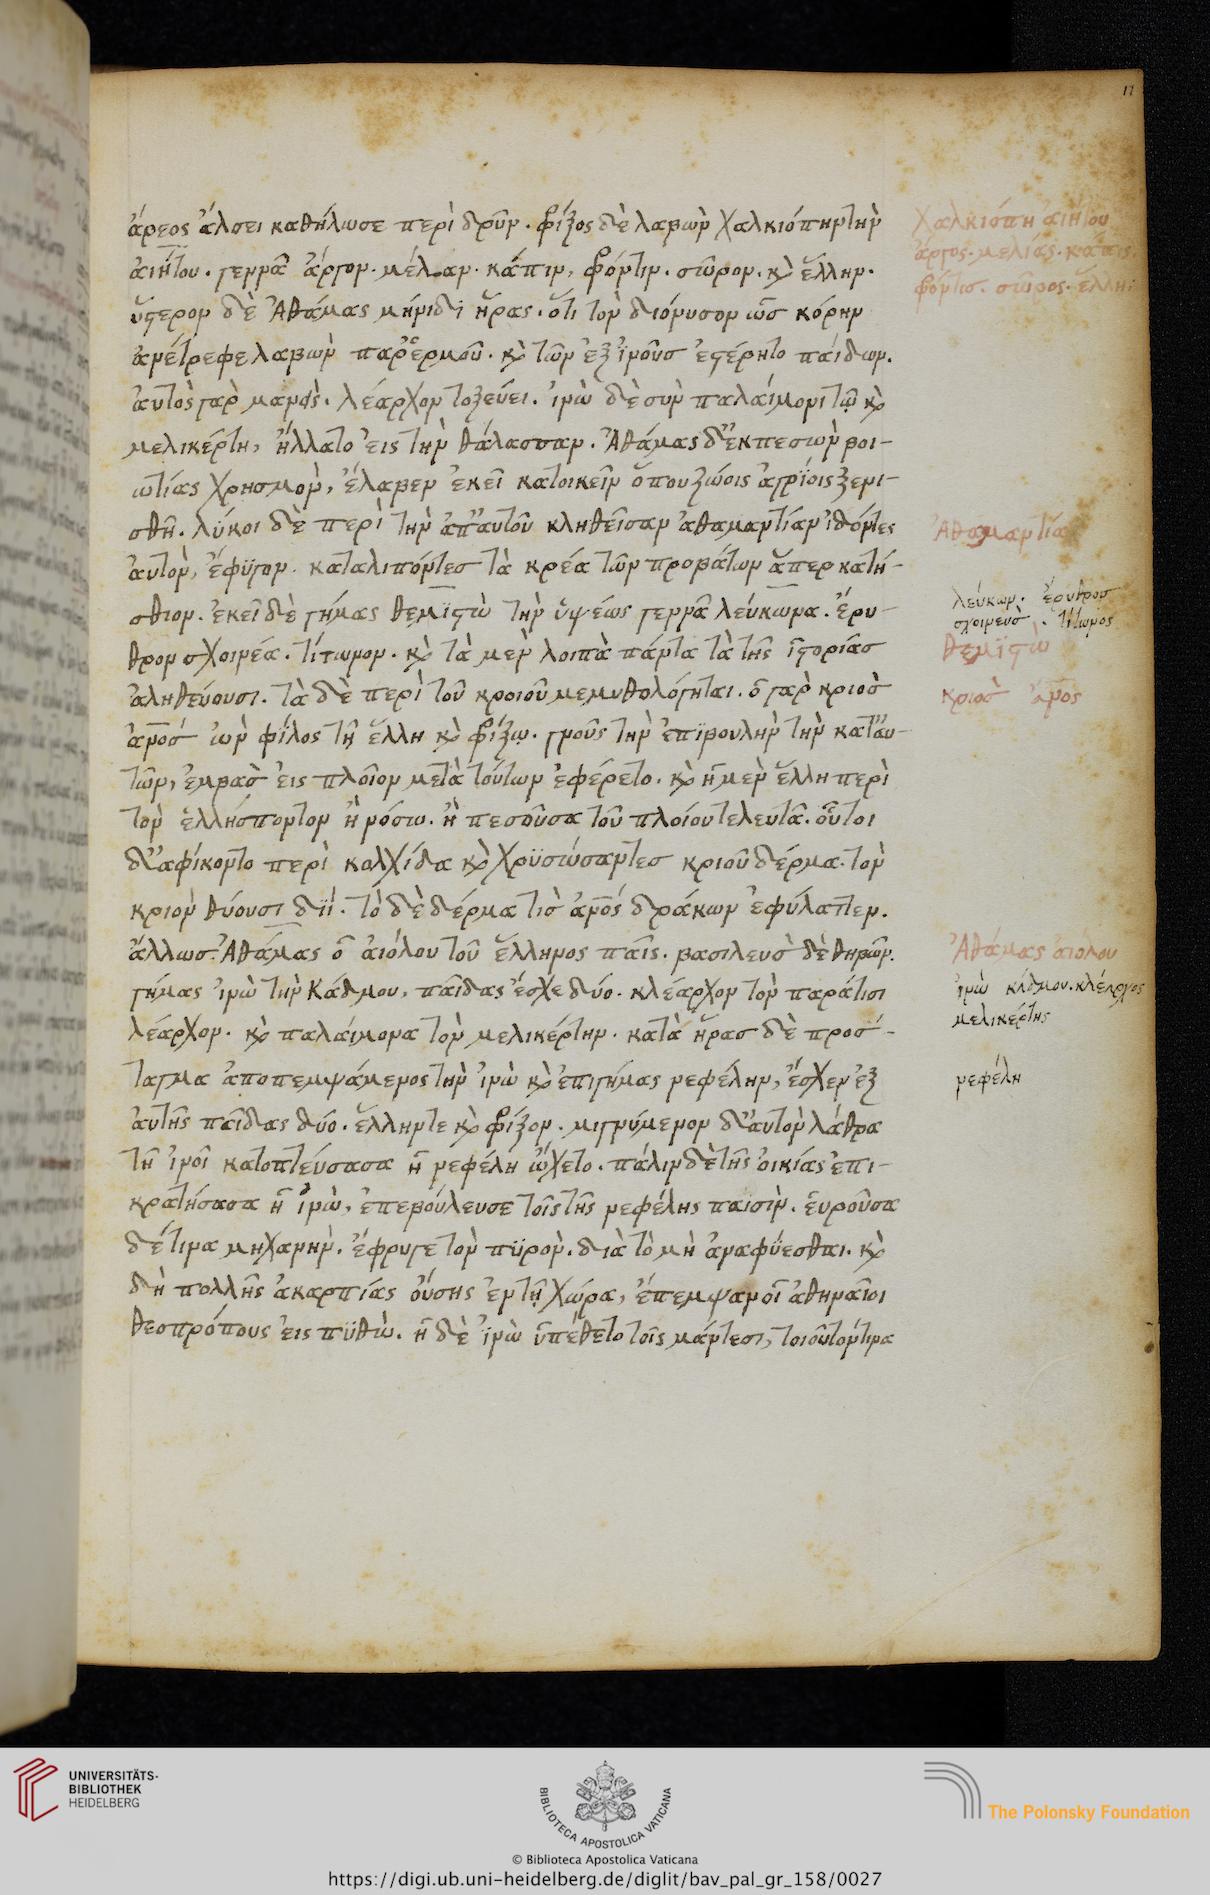 11
ἄρεος ἄλσει καθήλωσε περὶ δρῦν. φρίξος δὲ λαβὼν χαλκιόπην τὴν
ἀιήτου. γεννᾶ ἄργον. μέλαν. κάπιν, φρόντιν. σῶρον. κὶ ἕλλην.
ὕστερον δὲ Ἀθάμας μήνιδι ἥρας. ὅτι τὸν διόνυσον ὡς κόρην
ἀνέτρεφε λαβὼν παρ' ἑρμοῦ. κὶ τῶν ἐξ ἰνοῦσ ἐστέρητο παίδων.
ἀυτὸς γὰρ μανεὶς. λέαρχον τοξεύει. ἰνὼ δὲ σὺν παλαίμονι τῷ κὶ
μελικέρτῃ, ἥλλατο εἰς τὴν θάλασσαν. Ἀθάμας δ' ἐκπεσὼν βοι-
ωτίας χρησμὸν, ἔλαβεν ἐκεῖ κατοικεῖν ὅπου ζώοις ἀγρίοις ξενι-
σθῇ. λύκοι δὲ περὶ τὴν ἀπ' αυτοῦ κληθεῖσαν ἀθαμαντίαν ἰδόντες
ἀυτὸν, ἔφυγον. καταλιπόντεσ τὰ κρέα τῶν προβάτων ἅπερ κατή-
σθιον. ἐκεῖ δὲ γήμας θεμϊστὼ τὴν ὑψέως γεννᾶ λεύκωνα. ἔρυ-
θρον σχοινέα. τίτωνον. κὶ τὰ μὲν λοιπὰ πάντα τὰ τῆς ἱστορίασ
ἀληθεύουσι. τὰ δὲ περὶ τοῦ κριοῦ μεμυθολόγηται. ὁ γὰρ κριὸσ
ἀνος ὢν φίλος τῇ ἕλλῃ κὶ φρίξῳ. γνοῦς τὴν ἐπϊβουλὴν τὴν κατ' αυ-
τῶν, ἐμβὰσ εἰς πλοῖον μετὰ τούτων ἐφέρετο. κὶ ἡ μὲν ἕλλη περὶ
τὸν ἑλλήσποντον ἢ νόσω. ἢ πεσοῦσα τοῦ πλοίου τελευτᾶ. οὗτοι
δ' ἀφίκοντο περὶ κολχίδα κὶ χρϋσώσαντεσ κριοῦ δέρμα. τὸν
κριὸν θύουσι διί. τὸ δὲ δέρμα τὶσ ἀνος δράκων ἐφύλαττεν.
ἄλλωσ. Ἀθάμας ὁ ἀιόλου τοῦ ἕλληνος παῖς. βασιλεὺσ δὲ θηβῶν.
γήμας ἰνὼ τὴν Κάδμου, παῖδας ἔσχε δύο. κλέαρχον τὸν παράτισι
λέαρχον. κὶ παλαίμονα τὸν μελικέρτην. κατὰ ἥρασ δὲ προσ-
ταγμα ἀποπεμψάμενος τὴν ἰνὼ κὶ ἐπιγήμας νεφέλην, ἔσχεν ἐξ
ἀυτῆς παῖδας δύο. ἕλλην τε κὶ φρίξον. μιγνύμενον δ' ἀυτὸν λάθρα
τῇ ἰνοῖ κατοπτεύσασα ἡ νεφέλη ὤχετο. πάλιν δὲ τῆς οἰκίας ἐπι-
κρατήσασα ἡ ἰνὼ, ἐπεβούλευσε τοῖς τῆς νεφέλης παισὶν. ἑυροῦσα
δέ τινα μηχανὴν. ἔφρυγε τὸν πϋρὸν. διὰ τὸ μὴ ἀναφύεσθαι. κὶ
δὴ πολλῆς ἀκαρπίας ὀύσης ἐν τῇ χώρα, ἔπεμψαν οἱ ἀθηναῖοι
θεοπρόπους εἰς πϋθὼ. ἡ δὲ ἰνὼ ὑπέθετο τοῖς μάντεσι, τοιοῦτόν τινα
χαλκιόπη ἀιήτου
ἄργος. μελίας. κάπις.
φρόντισ. σῶρος. ἕλλην
Ἀθαμαντία
λεύκων. ἔρυθροσ
σχοινεὺσ. τίτωνος
θεμϊστὼ
κριοσ ἀνος
Ἀθάμας ἀιόλου
ἰνὼ κάδμου. κλέαρχος
μελικέρτης
νεφέλη
UNIVERSITÄTS-
BIBLIOTHEK
HEIDELBERG
BIBLIOTECA APOSTOLICA VATICANA
The Polonsky Foundation
© Biblioteca Apostolica Vaticana
https://digi.ub.uni-heidelberg.de/diglit/bav_pal_gr_158/0027